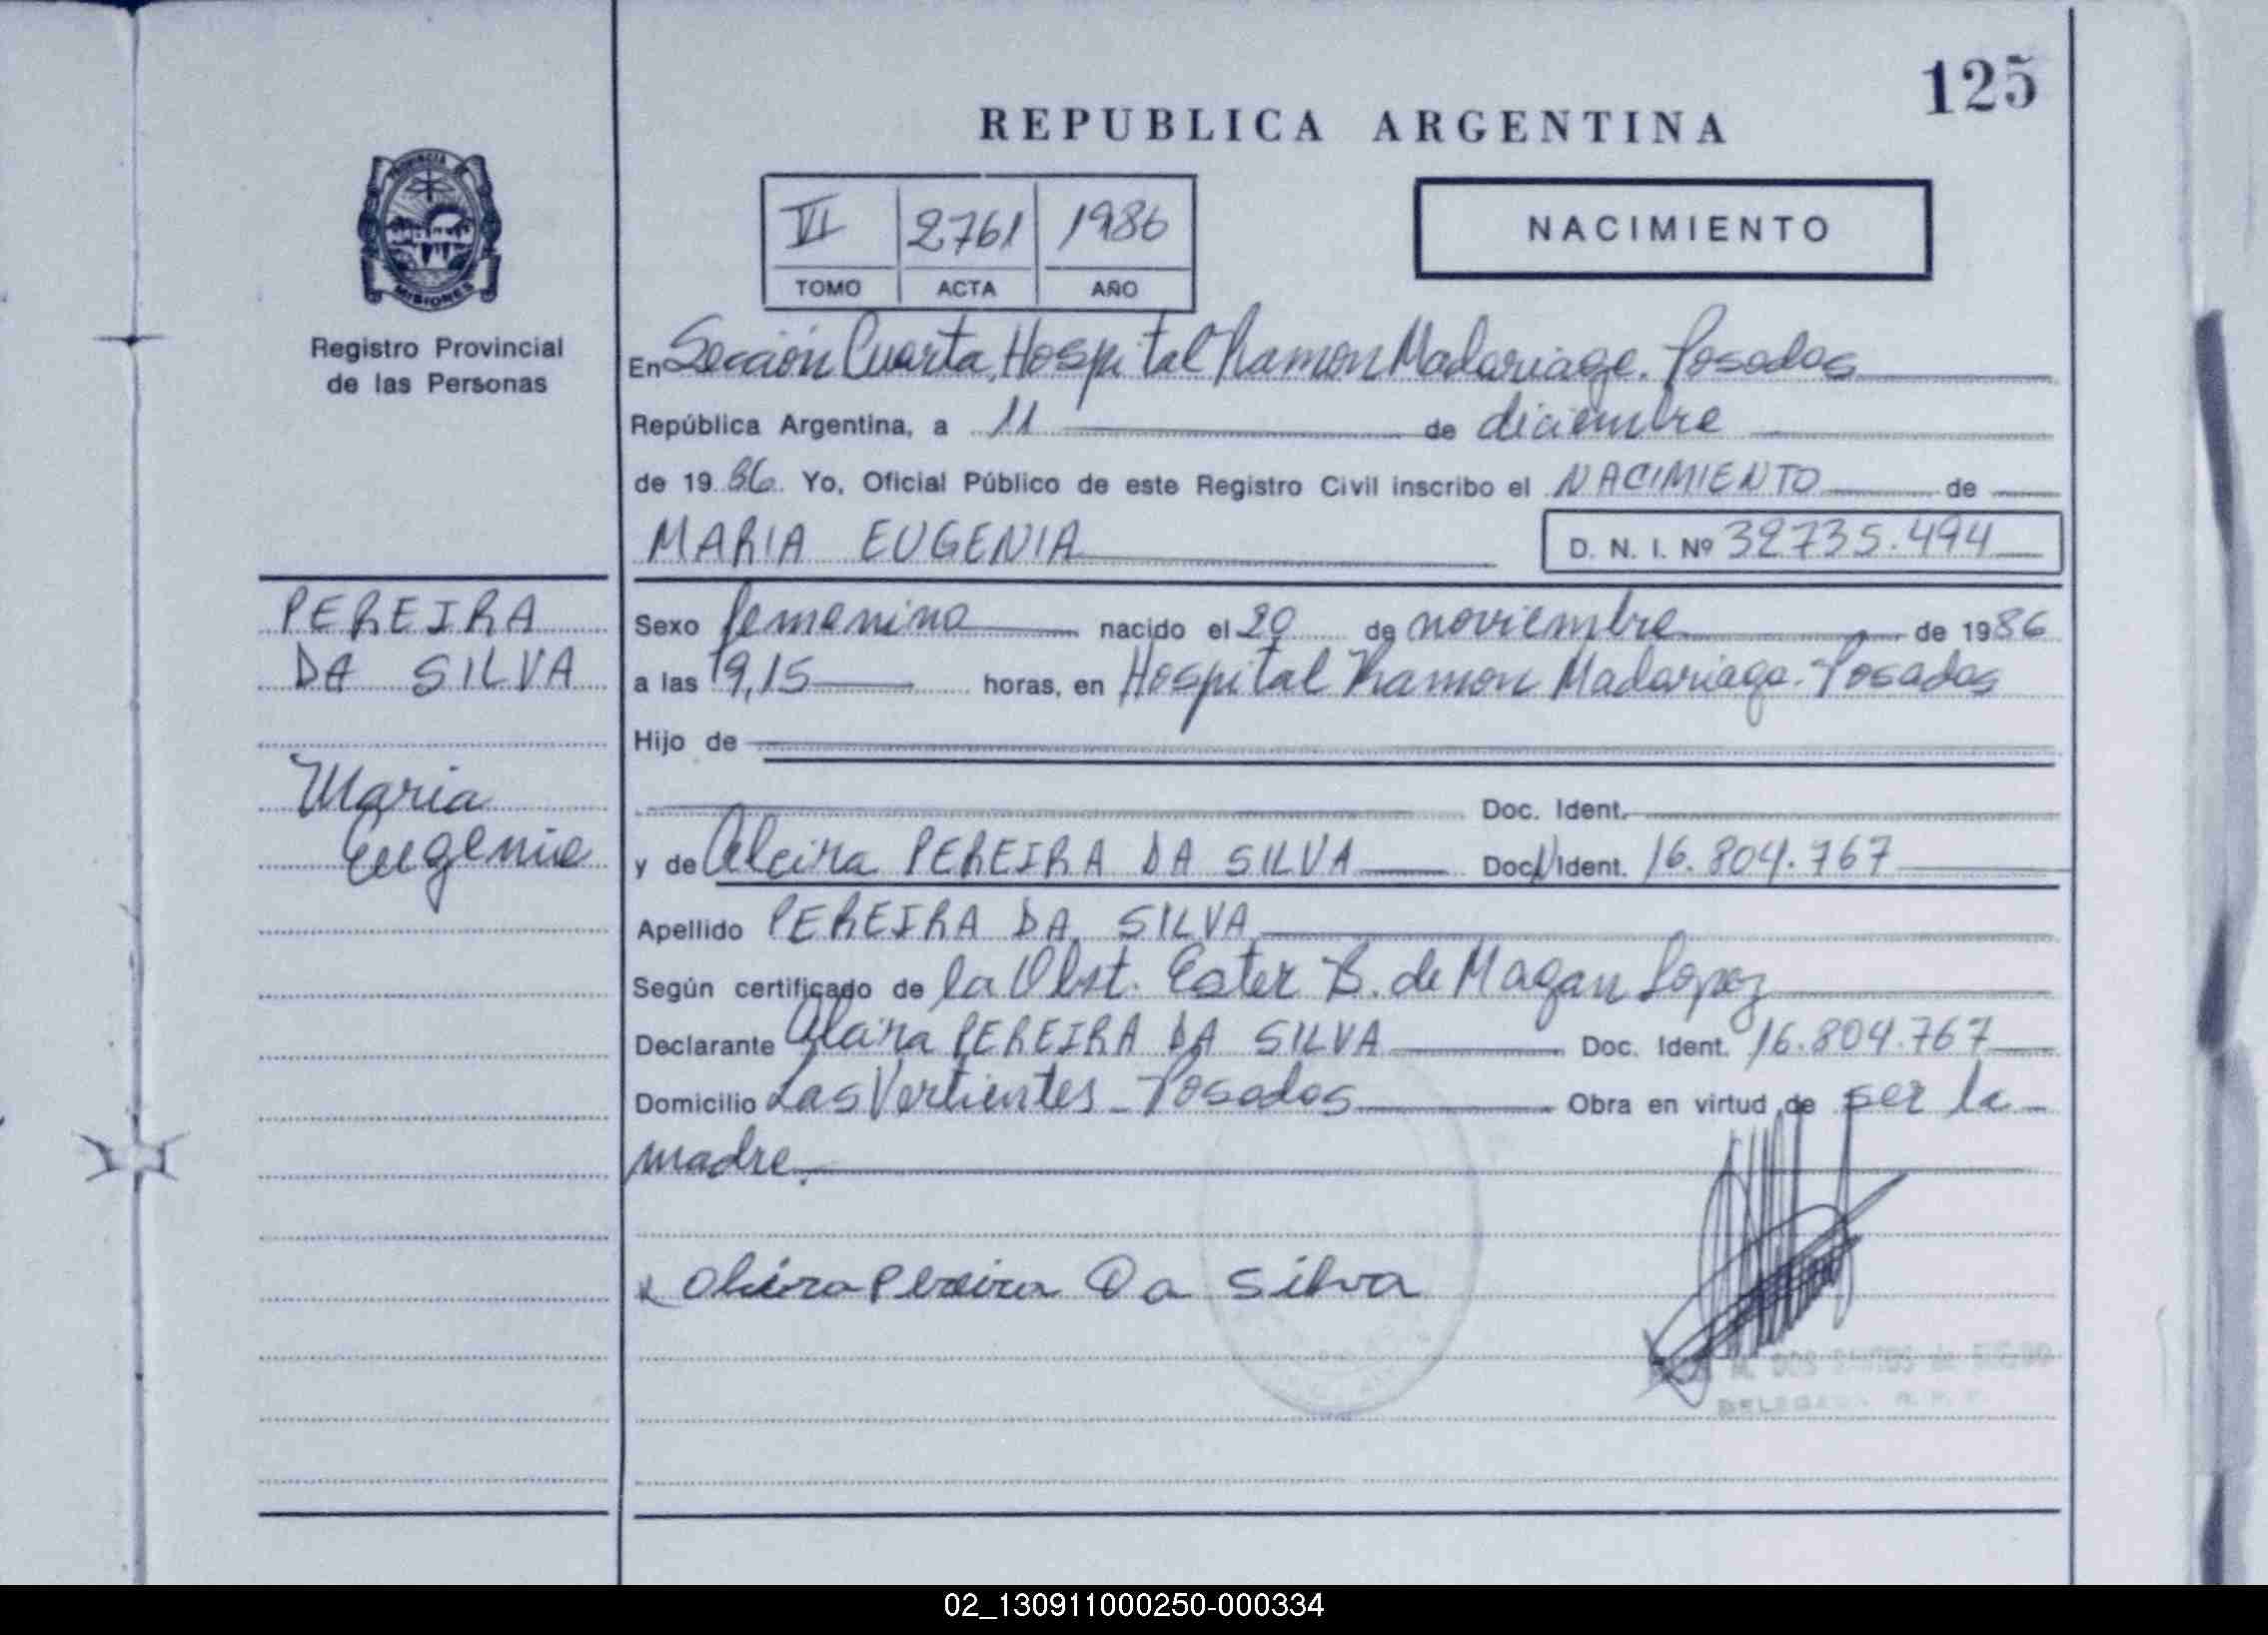 125
REPUBLICA ARGENTINA
PROVINCIA DE
MISIONES
VI 2761 1986
TOMO ACTA AÑO
NACIMIENTO
Registro Provincial
de las Personas
En Sección Cuarta, Hospital Ramon Madariaga. Posadas
República Argentina, a 11 de diciembre
de 1986. Yo, Oficial Público de este Registro Civil inscribo el NACIMIENTO de
MARIA EUGENIA D. N. I. Nº 32.735.494
PEREIRA
DA SILVA
Maria
Eugenia
Sexo femenino nacido el 20 de noviembre de 1986
a las 19,15 horas, en Hospital Ramon Madariaga - Posadas
Hijo de
Doc. Ident.
y de Alcira PEREIRA DA SILVA Doc. Ident. 16.804.767
Apellido PEREIRA DA SILVA
Según certificado de la Obst. Ester B. de Magan Lopez
Declarante Alcira PEREIRA DA SILVA Doc. Ident. 16.804.767
Domicilio Las Vertientes - Posadas Obra en virtud de ser la
madre.
x Alcira Pereira Da Silva
DOS SANTOS de
DELEGADA R. P. P.
02_130911000250-000334